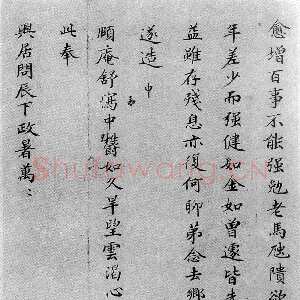 愈增百事不能強勉老馬虺隤欲
年差少而强健如金如曾遽皆
益雖存殘息亦復何聊弟念去鄉
遂造
順庵舒寫中欝如久旱望雲渴心
此奉
興居問辰下政暑萬〻
Shufawang.cn